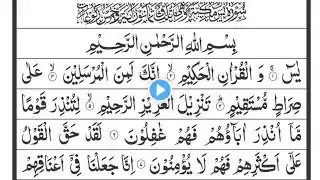 بِسْمِ اللّٰهِ الرَّحْمٰنِ الرَّحِيْمِ
يٰسٓ ۚ ۱ وَ الْقُرْاٰنِ الْحَكِيْمِ ۙ ۲ اِنَّكَ لَمِنَ الْمُرْسَلِيْنَ ۙ ۳ عَلٰى
صِرَاطٍ مُّسْتَقِيْمٍ ؕ ۴ تَنْزِيْلَ الْعَزِيْزِ الرَّحِيْمِ ۙ ۵ لِتُنْذِرَ قَوْمًا
مَّاۤ اُنْذِرَ اٰبَآؤُهُمْ فَهُمْ غٰفِلُوْنَ ۶ لَقَدْ حَقَّ الْقَوْلُ
عَلٰۤى اَكْثَرِهِمْ فَهُمْ لَا يُؤْمِنُوْنَ ۷ اِنَّا جَعَلْنَا فِيْۤ اَعْنَاقِهِمْ